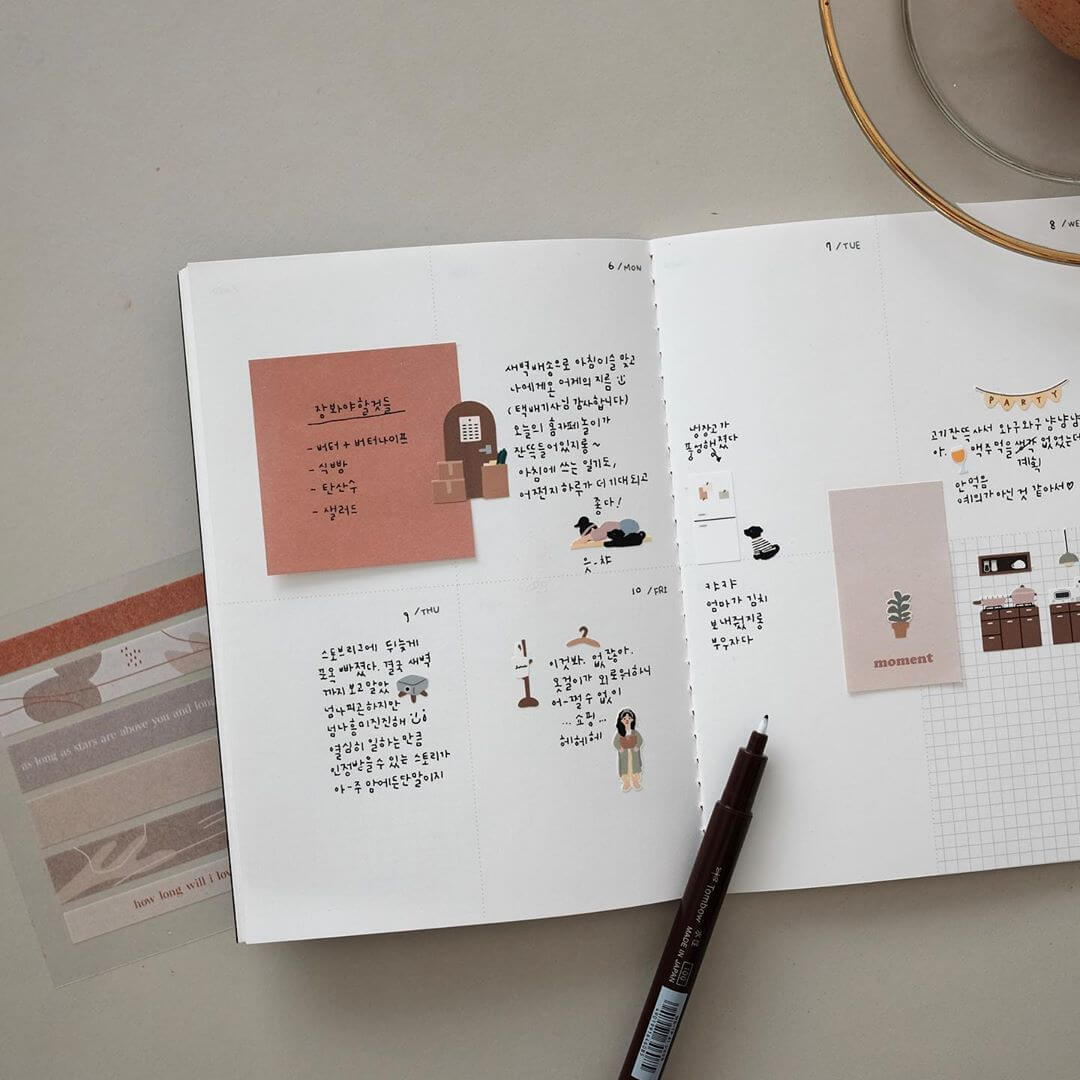 6 / MON
장봐야할것들
- 버터 + 버터나이프
- 식빵
- 탄산수
- 샐러드
새벽배송으로 아침이슬 맞고
나에게온 어제의 지름
(택배기사님 감사합니다)
오늘의 홈카페놀이가
잔뜩들어있지롱~
아침에 쓰는 일기도,
어쩐지 하루가 더 기대되고
좋다!
읏-챠
7 / TUE
냉장고가
풍성해졌다
캬캬
엄마가 김치
보내줬지롱
부우자다
8 / WE
PARTY
고기잔뜩사서 와구와구 냠냠냠
아. 맥주먹을 생각 없었는데
계획
안먹음
예의가 아닌 것 같아서♡
moment
9 / THU
스토브리그에 뒤늦게
푸욱 빠졌다. 결국 새벽
까지 보고말았
넘나피곤하지만
넘나흥미진진해
열심히 일하는만큼
인정받을수 있는 스토리가
아-주 맘에든단말이지
10 / FRI
이것봐. 없잖아.
옷걸이가 외로워하니
어-쩔수 없이
... 쇼핑 ...
헤헤헤
as long as stars are above you and long
how long will i lov
Tombow 水性 MADE IN JAPAN 100